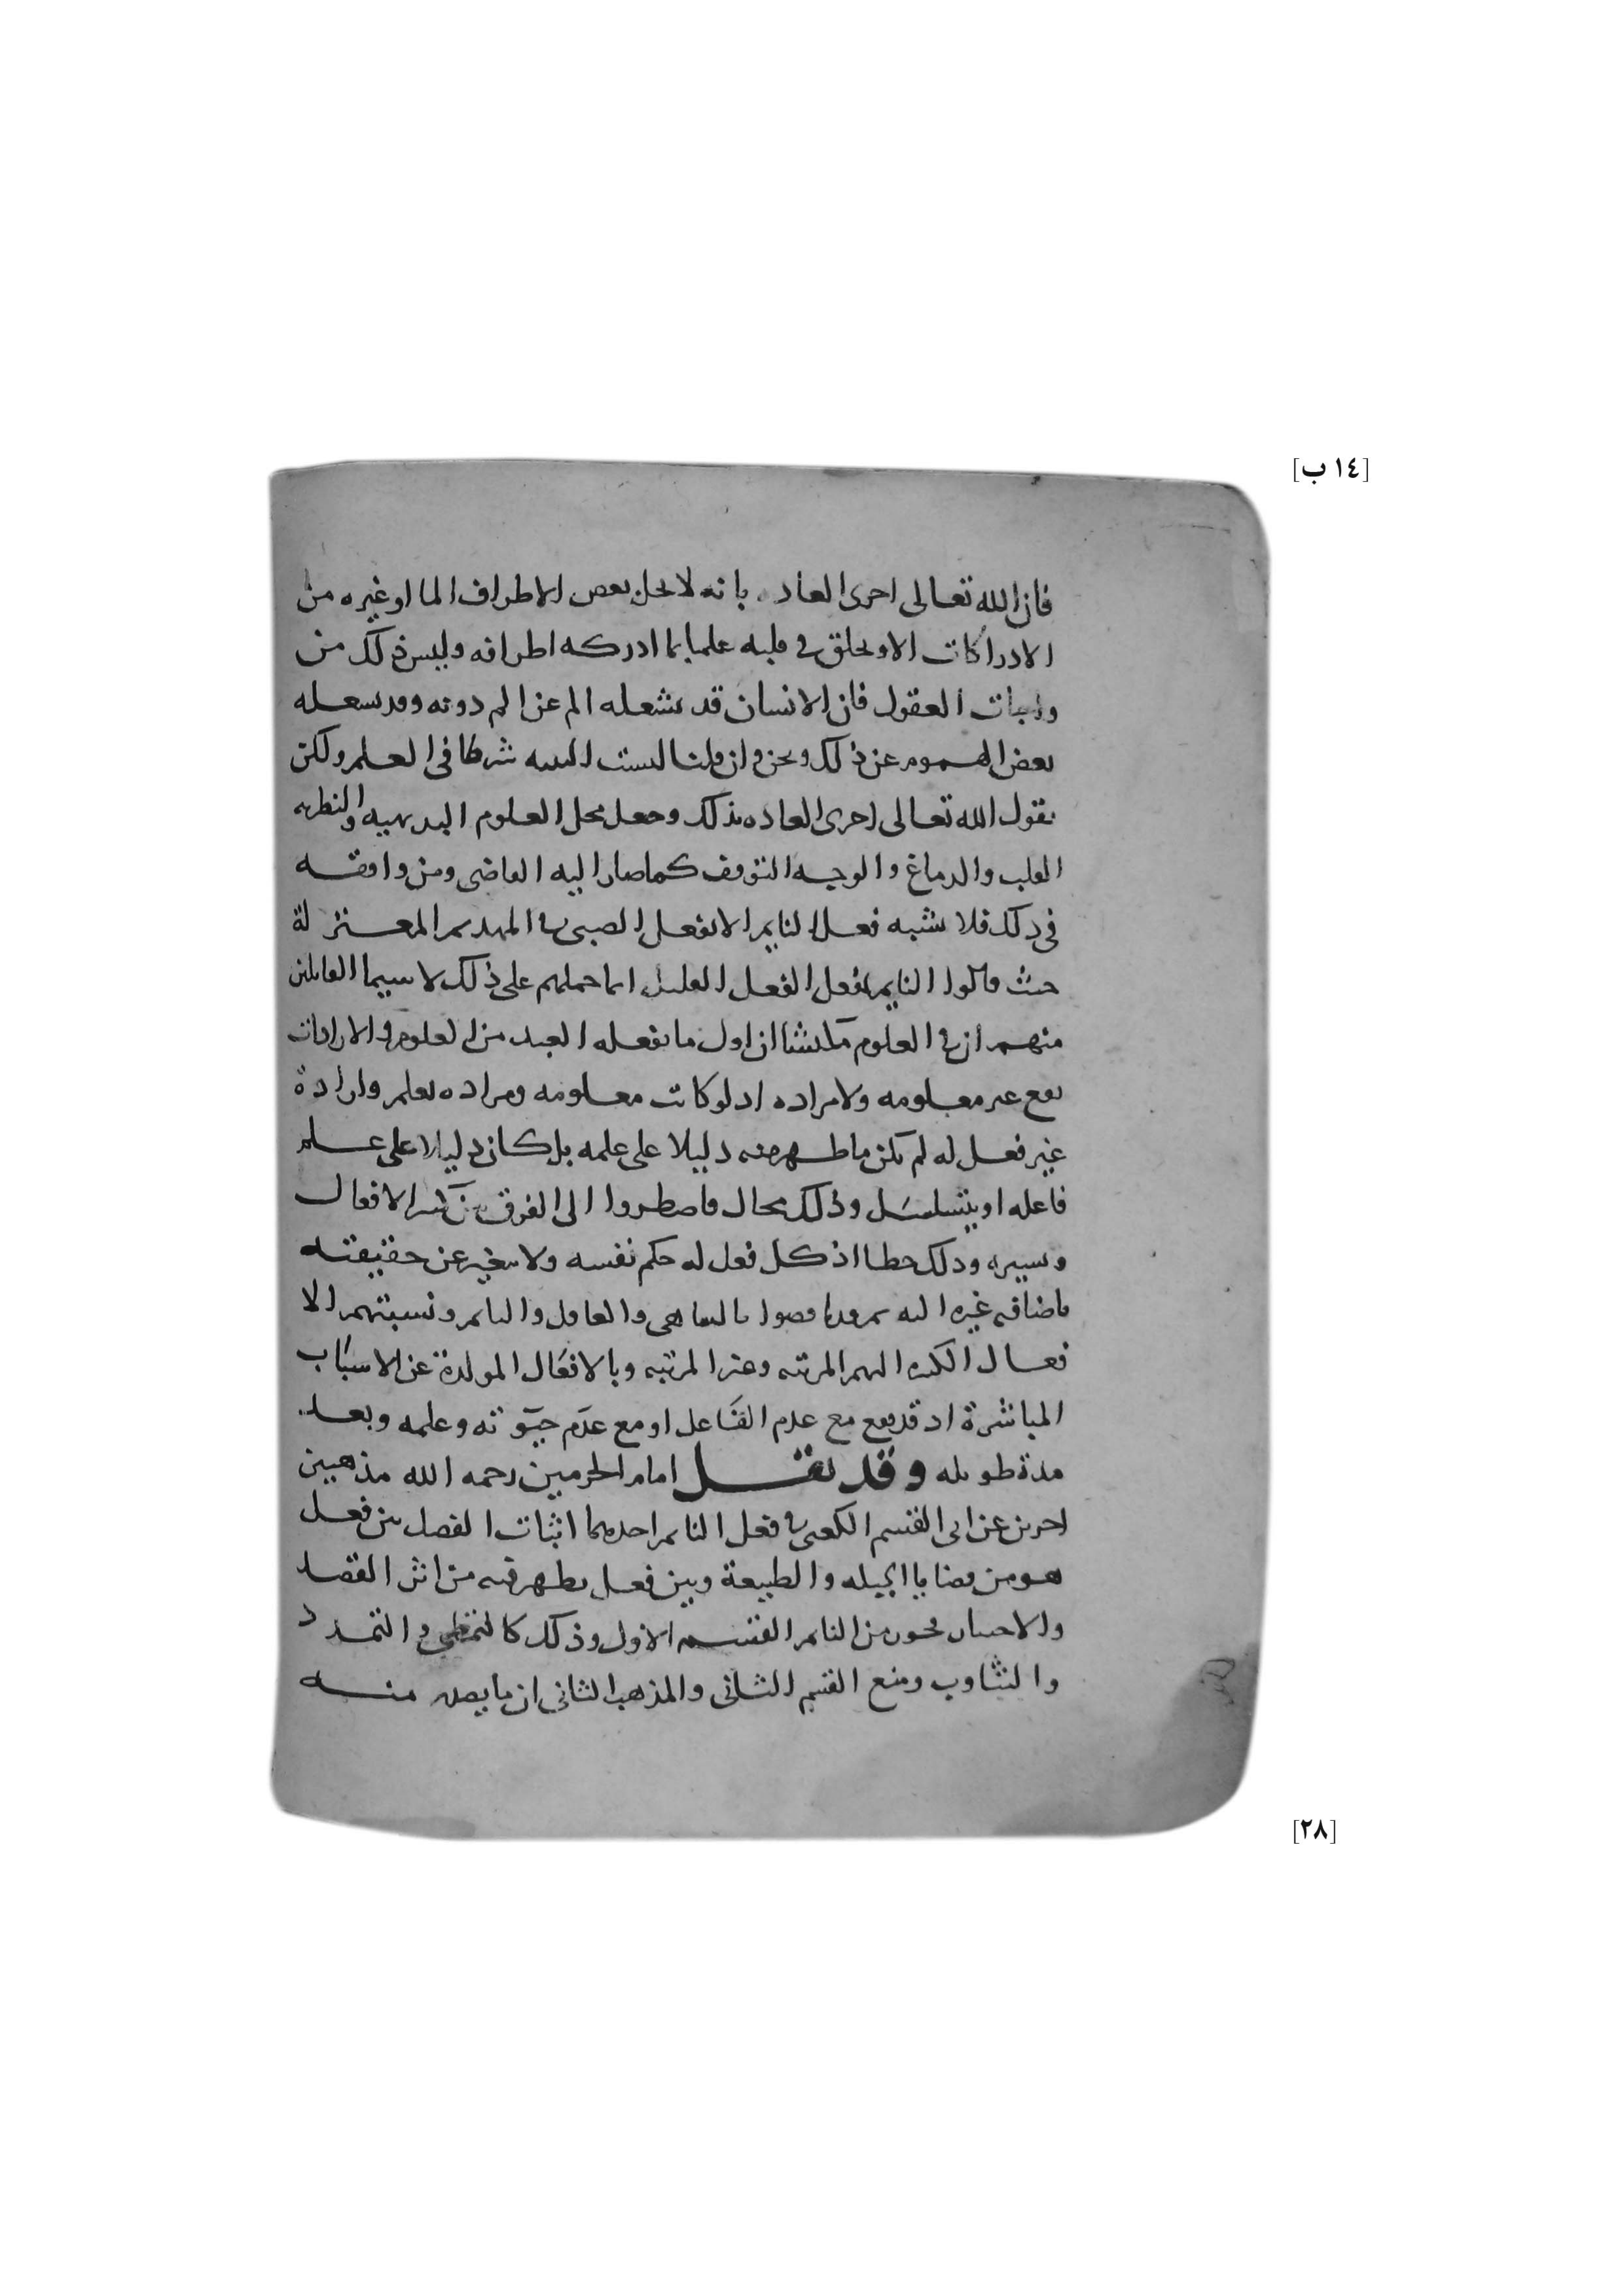 [١٤ ب]
فان الله تعالى اجرى العاد بانه لا يخلق بعض الاطراف الما او غيره من
الادراكات الا ويخلق في قلبه علما بما ادركه اطرافه وليس ذلك من
واجبات العقول فان الانسان قد يشغله الم عن الم دونه وقد يشغله
بعض الهموم عن ذلك ونحن وان قلنا ليست البنيه شرطا في العلم ولكن
نقول الله تعالى اجرى العاده بذلك وجعل محل العلوم البديهيه والنظريه
القلب والدماغ والوجه التوقف كما صار اليه القاضي ومن وافقه
في ذلك فلا يشبه فعل النايم الا بفعل الصبي في المهد ثم المعتزلة
حيث قالوا النايم يفعل الفعل القليل انما حملهم على ذلك لا سيما القايلين
منهم ان في العلوم ان اول ما يفعله العبد من العلوم والارادات
يقع غير معلومه ولا مراده اذ لو كانت معلومه ومراده بعلم وارادة
غير فعل له لم يكن ما ظهر منه دليلا على علمه بل كان دليلا على علم
فاعله او يتسلسل وذلك محال فاضطروا الى الفرق بين كثير الافعال
ويسيره وذلك خطا اذ كل فعل له حكم نفسه ولا يتغير عن حقيقته
باضافه غيره اليه ثم بالساهي والغافل والنايم ونسبتهم الا
فعال الكثيره اليهم المرتبه وغير المرتبه وبالافعال المولدة عن الاسباب
المباشرة اذ قد يقع مع عدم الفاعل او مع عدم حيوته وعلمه وبعد
مدة طويله وقد نقل امام الحرمين رحمه الله مذهبين
اخرين عن ابي القسم الكعبي في فعل النايم احدهما اثبات الفصل بين فعل
هو من قضايا الجبله والطبيعة وبين فعل يظهر فيه من اثر القصد
والاختيار فجوز من النايم القسم الاول وذلك كالتمطي والتمدد
والتثاوب ومنع القسم الثاني والمذهب الثاني ان ما يصدر منه
[٢٨]